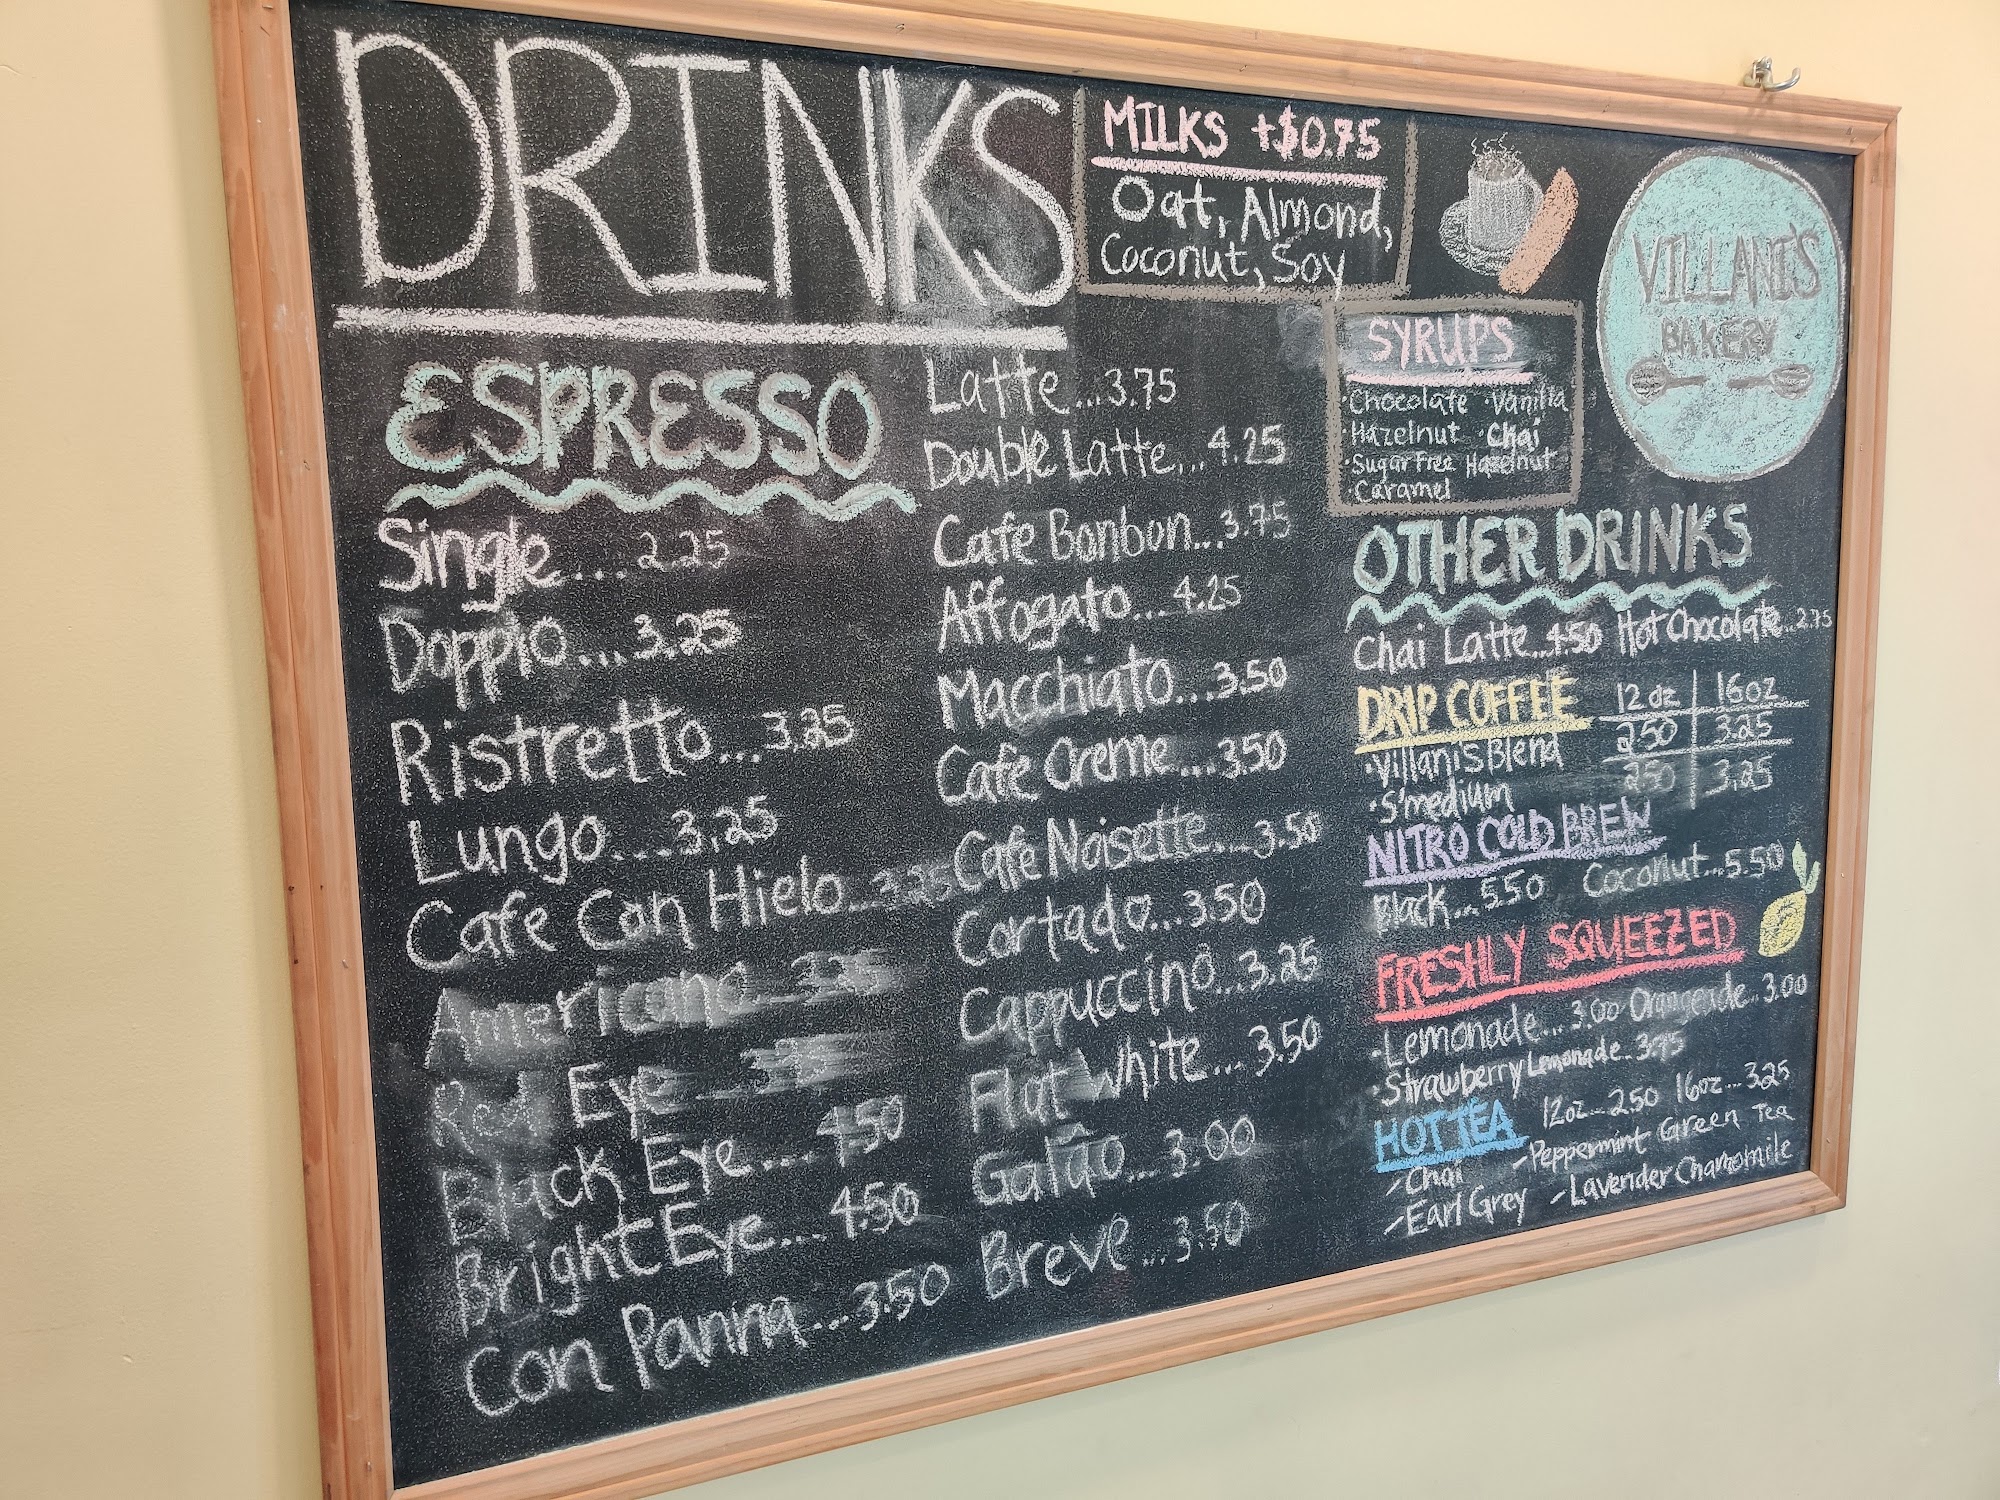 DRINKS
MILKS +$0.75
Oat, Almond,
Coconut, Soy
VILLANI'S
BAKERY
SYRUPS
·Chocolate ·Vanilla
·Hazelnut ·Chai
·Sugar Free Hazelnut
·Caramel
ESPRESSO
Single....2.25
Doppio...3.25
Ristretto...3.25
Lungo...3.25
Cafe Con Hielo...3.25
Americano...3.25
Red Eye
Black Eye....4.50
Bright Eye....4.50
Con Panna...3.50
Latte...3.75
Double Latte...4.25
Cafe Bonbon...3.75
Affogato...4.25
Macchiato...3.50
Cafe Creme...3.50
Cafe Noisette...3.50
Cortado...3.50
Cappuccino...3.25
Flat White...3.50
Galão...3.00
Breve...3.50
OTHER DRINKS
Chai Latte...4.50 Hot Chocolate...2.75
DRIP COFFEE 12oz 16oz
·Villani's Blend 2.50 3.25
·S'medium 2.50 3.25
NITRO COLD BREW
Black...5.50 Coconut...5.50
FRESHLY SQUEEZED
·Lemonade...3.00 Orangeade...3.00
·Strawberry Lemonade..3.75
HOT TEA 12oz...2.50 16oz...3.25
-Chai -Peppermint Green Tea
-Earl Grey -Lavender Chamomile